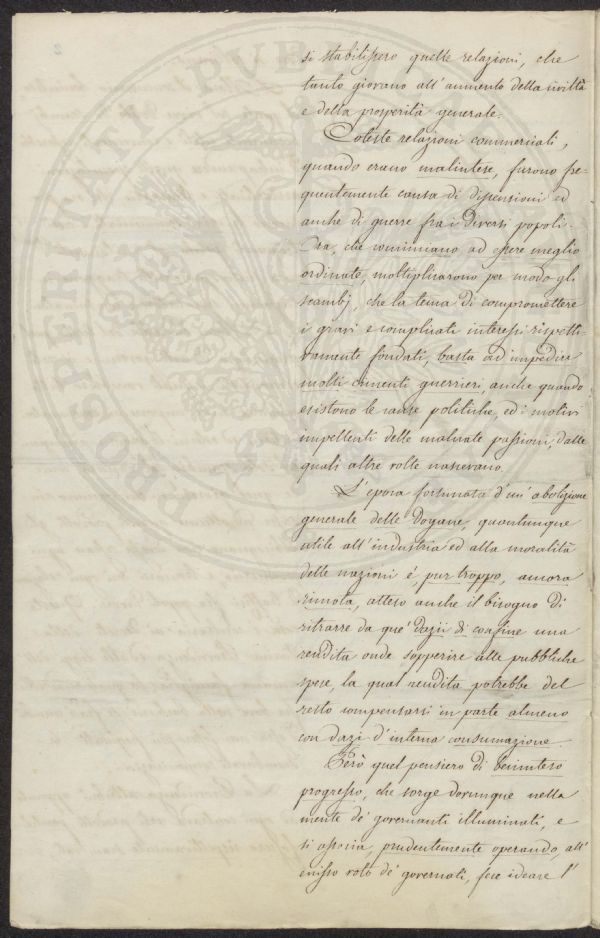 si stabilissero quelle relazioni, che
tanto giovano all'aumento della civiltà
e della prosperità generale.
Coteste relazioni commerciali,
quando erano malintese, furono fre-
quentemente causa di dissensioni ed
anche di guerre fra i diversi popoli.
Ora, che cominciano ad essere meglio
ordinate, moltiplicarono per modo gli
scambj, che la tema di compromettere
i gravi e complicati interessi rispetti-
vamente fondati, basta ad impedire
molti cimenti guerrieri, anche quando
esistono le cause politiche, ed i motivi
impellenti delle malnate passioni, dalle
quali altre volte nascevano.
L'epoca fortunata d'un'abolizione
generale delle Dogane, quantunque
utile all'industria ed alla moralità
delle nazioni é, pur troppo, ancora
rimota, atteso anche il bisogno di
ritrarre da que' dazii di confine una
rendita onde sopperire alle pubbliche
spese, la qual rendita potrebbe del
resto compensarsi in parte almeno
con dazi d'interna consumazione.
Però quel pensiero di beninteso
progresso, che sorge dovunque nella
mente de' governanti illuminati, e
si associa, prudentemente operando, all'
emisso voto de' governati, fece ideare l'
PROSPERITATI PVBL